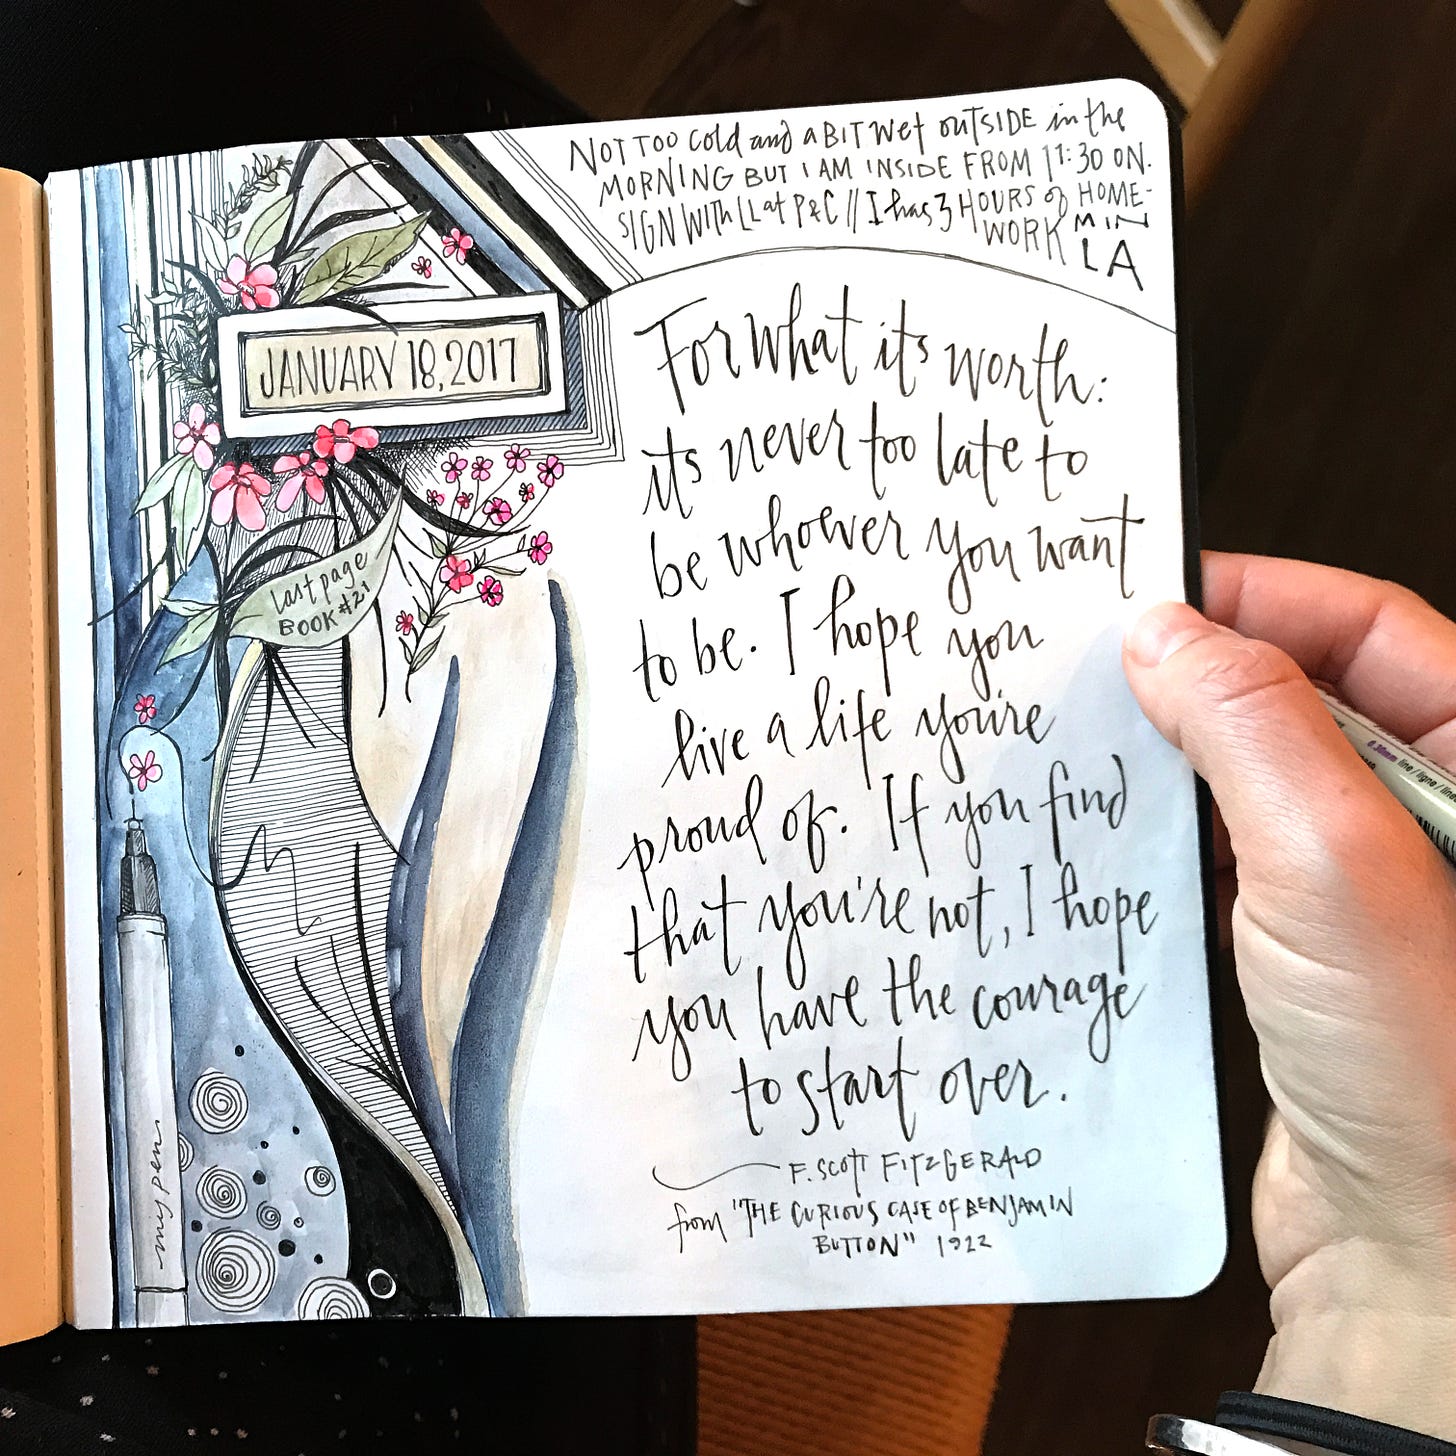 NOT TOO cold and a BIT wet outSIDE in the
MORNING BUT I AM INSIDE FROM 11:30 ON.
SIGN WITH LL at P&C // I has 3 HOURS of HOME-
WORK
M IN
LA
JANUARY 18, 2017
last page
BOOK #21
my pen
For what it's worth:
it's never too late to
be whoever you want
to be. I hope you
live a life you're
proud of. If you find
that you're not, I hope
you have the courage
to start over.
F. SCOTT FITZGERALD
from "THE CURIOUS CASE OF BENJAMIN
BUTTON" 1922
0.30mm line/ligne/line